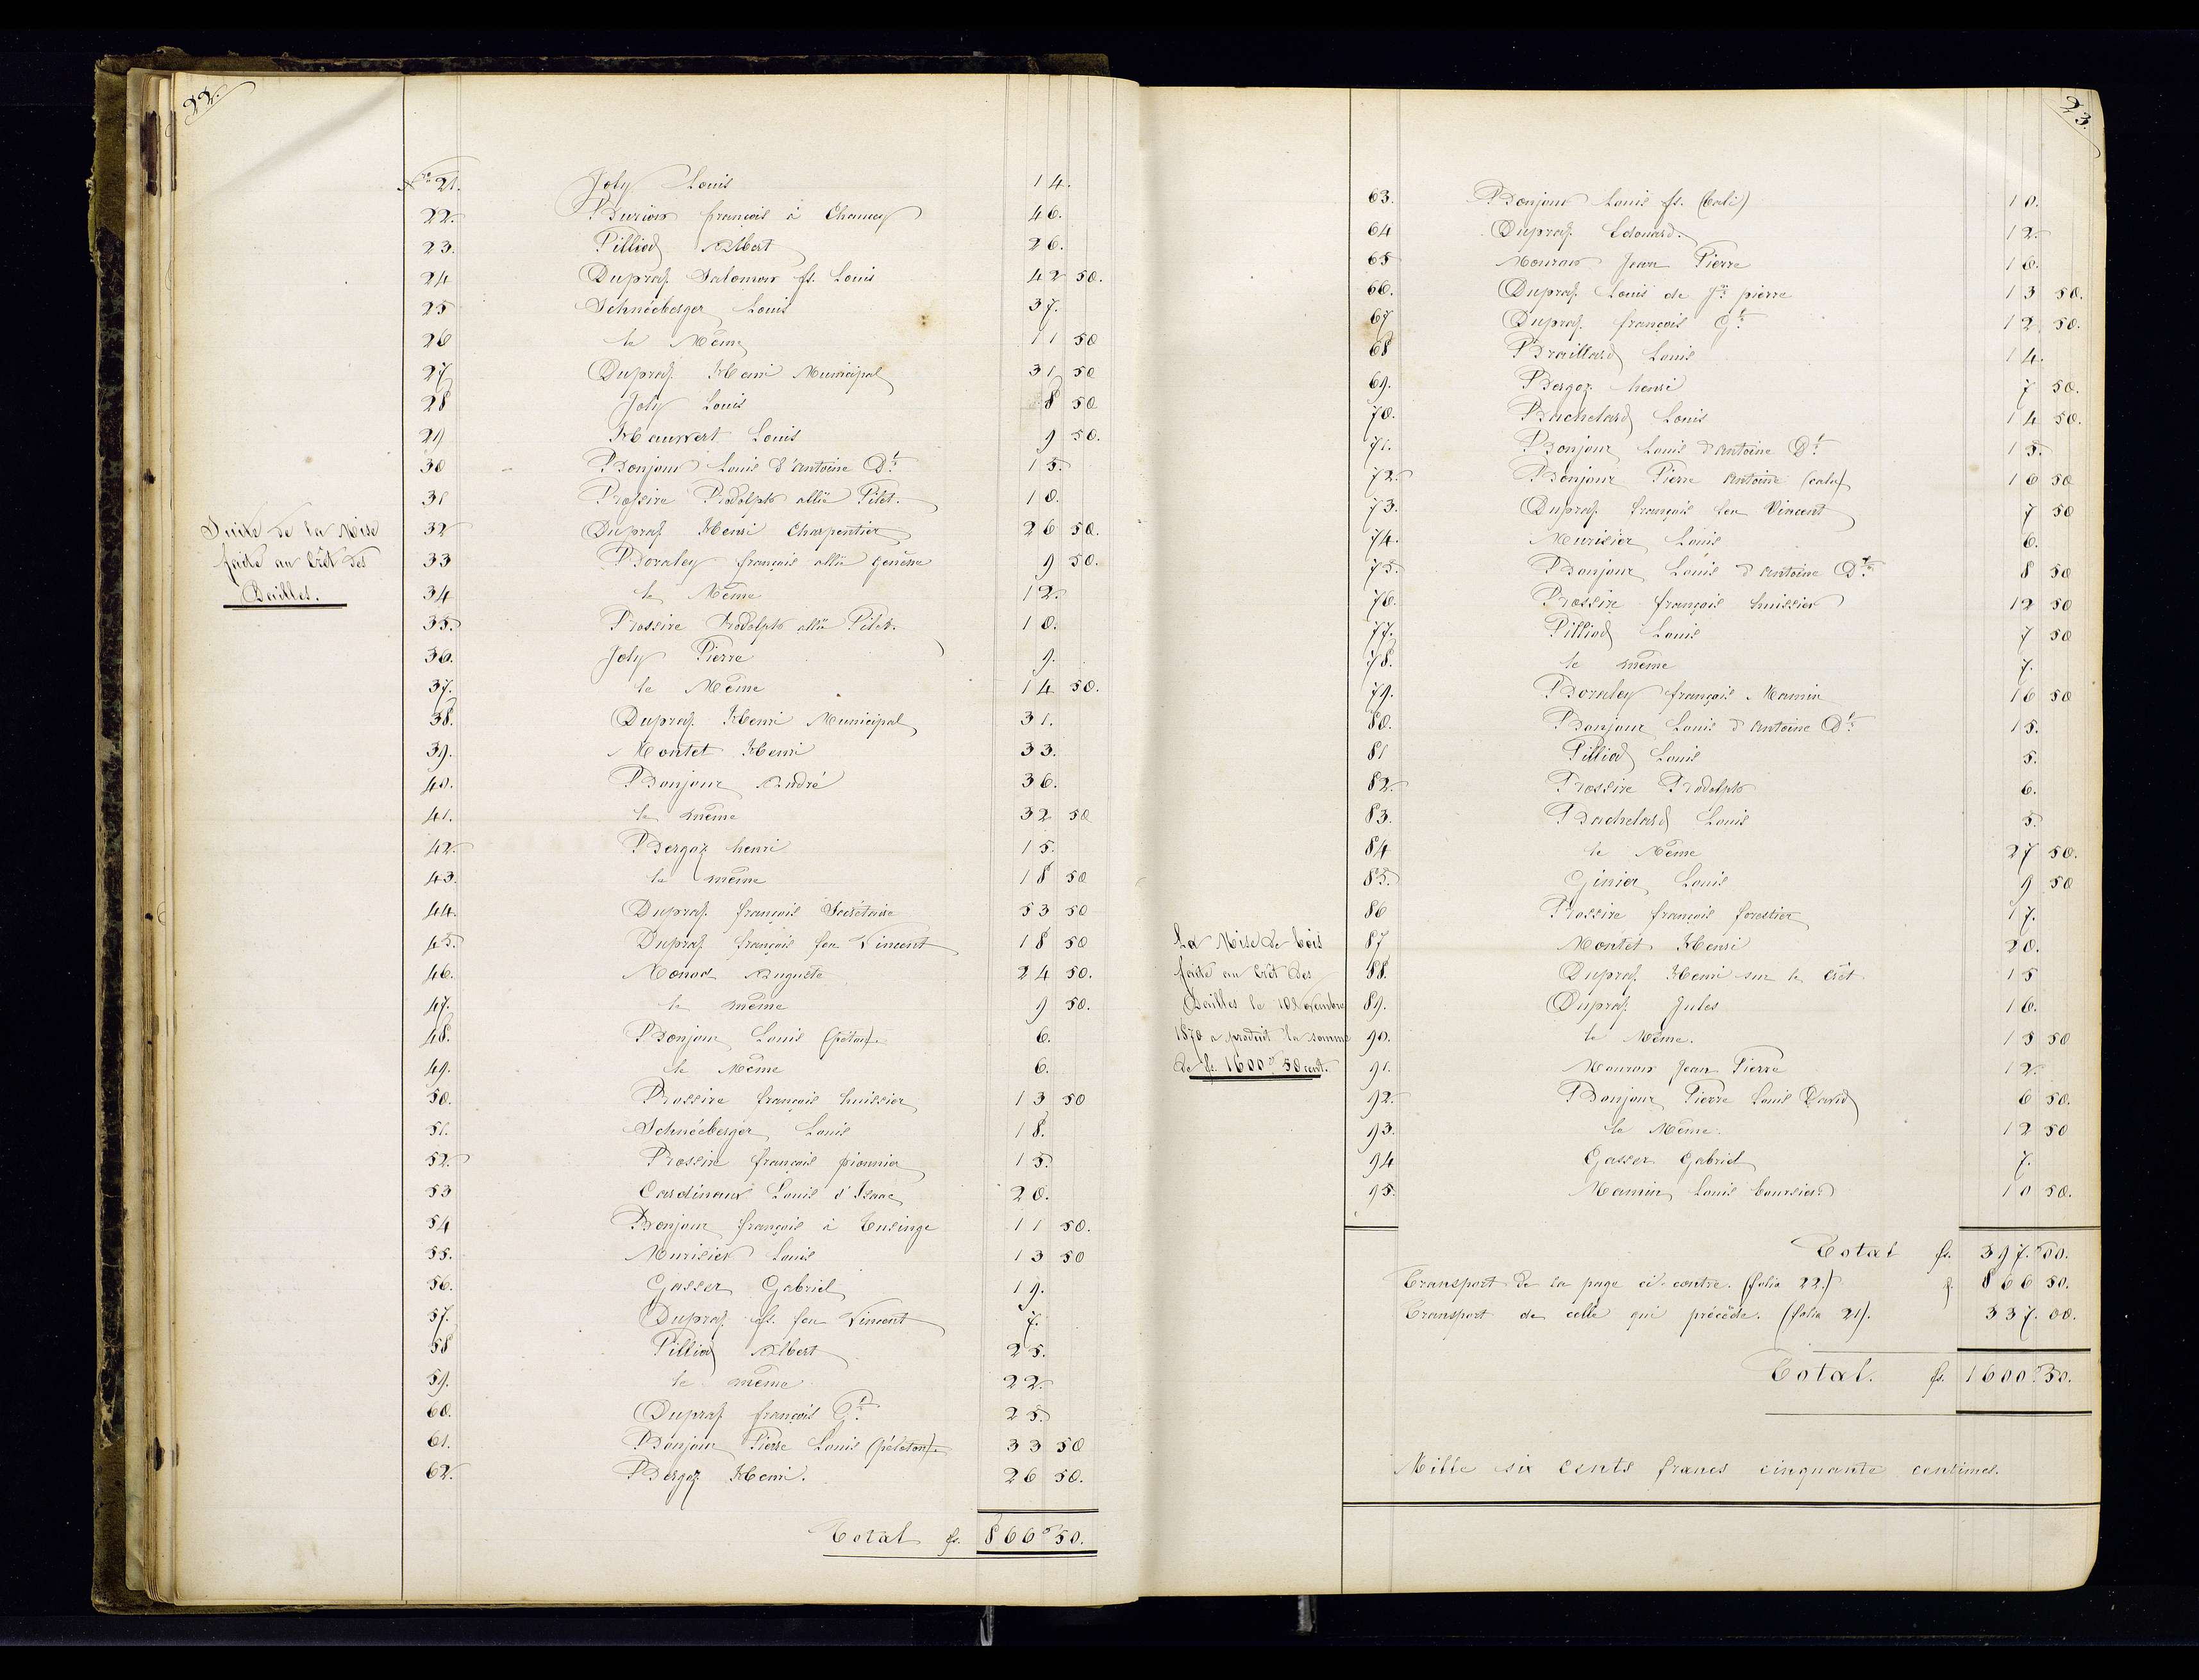 22.
No 21. Joly Louis 14.
22. Burion françois à Chancy 46.
23. Pilliod Albert 26.
24 Dupraz Salomon fs. Louis 42 50.
25 Schnéeberger Louis 37.
26 le Même 11 50
27 Dupraz Henri Municipal 31 50
28 Joly Louis 8 50
29 Hauvert Louis 9 50.
30 Bonjour Louis d'antoine Dd 15.
31 Rossire Rodolph allié Pilet. 10.
Suite de la Mise
32 Dupraz Henri Charpentier 26 50.
faite au Crêt des
33 Boraley françois allié genène 9 50.
Deilles.
34 le Même 12.
35. Rossire Rodolph allié Pilet. 10.
36. Joly Pierre 9.
37. le Même 14 50.
38. Dupraz Henri Municipal 31.
39. Montet Henri 33.
40. Bonjour André 36.
41. le même 32 50
42. Bergoz henri 15.
43. le même 18 50
44. Dupraz françois Secrétaire 53 50
45. Dupraz françois feu Vincent 18 50
46. Monod Auguste 24 50.
47. le même 9 50.
48. Bonjour Louis (péton). 6.
49. le Même 6.
50. Rossire françois huissier 13 50
51. Schnéeberger Louis 18.
52. Rossire françois pionnier 15.
53 Cardinaux Louis d'Isaac 20.
54 Bonjour françois à Cusinge 11 50.
55. Murisier Louis 13 50
56. Gasser Gabriel 19.
57. Dupraz fs. feu Vincent 7.
58 Pilliod Albert 25.
59. le même 22.
60. Dupraz françois Gd 25.
61. Bonjour Pierre Louis (péloton). 33 50
62. Bergoz Henri. 26 50.
Total fs. 866 50.
23.
63. Bonjour Louis fs. (Cali) 10.
64 Dupraz Edouard. 12.
65 Monron Jean Pierre 16.
66. Dupraz Louis de Jn pierre 13 50.
67 Dupraz françois Gd 12 50.
68 Braillard Louis 14.
69. Bergoz henri 7 50.
70. Bachelard Louis 14 50.
71. Bonjour Louis d'antoine Dd 15.
72. Bonjour Pierre antoine (calu) 16 50
73. Dupraz françois feu Vincent 7 50
74. Murisier Louis 6.
75. Bonjour Louis d'antoine Dd 8 50
76. Rossire françois huissier 12 50
77. Pilliod Louis 7 50
78. le même 7.
79. Boraley françois Mamin 16 50
80. Bonjour Louis d'antoine Dd 15.
81 Pilliod Louis 5.
82. Rossire Rodolph 6.
83. Bachelard Louis 5.
84 le Même 27 50.
85. Ginier Louis 9 50
86 Rossire françois forestier 17.
La Mise de bois
87 Montet Henri 20.
faite au Crêt des
88. Dupraz Henri sur le crêt. 15
Deilles le 10 Novembre
89. Dupraz Jules 16.
1870 a produit la somme
90. le Même. 15 50
de fs. 1600 50 cent.
91. Monron Jean Pierre 12.
92. Bonjour Pierre Louis David 6 50.
93. le Même. 12 50
94 Gasser Gabriel 7.
95. Mamin Louis boursier 10 50.
Total fs. 397. 00.
Transport de la page ci-contre. (folio 22.) f. 866 50.
Transport de celle qui précède. (folio 21). 337. 00.
Total. fs. 1600. 50.
Mille six Cents francs cinquante centimes.